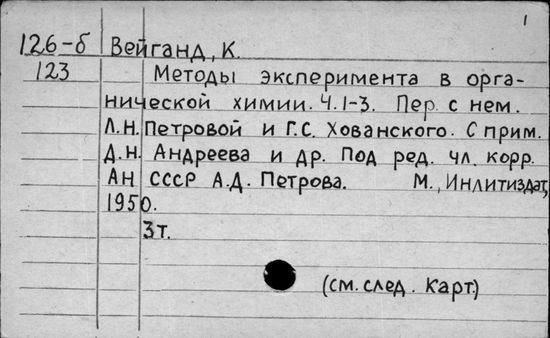 1
126-б Вейганд, К.
123 Методы эксперимента в орга-
нической химии. Ч.1-3. Пер. с нем.
Л.Н. Петровой и Г.С. Хованского. С прим.
Д.Н. Андреева и др. Под ред. чл. корр.
АН СССР А.Д. Петрова. М., Инлитиздат,
1950.
3т.
(см. след. карт.)